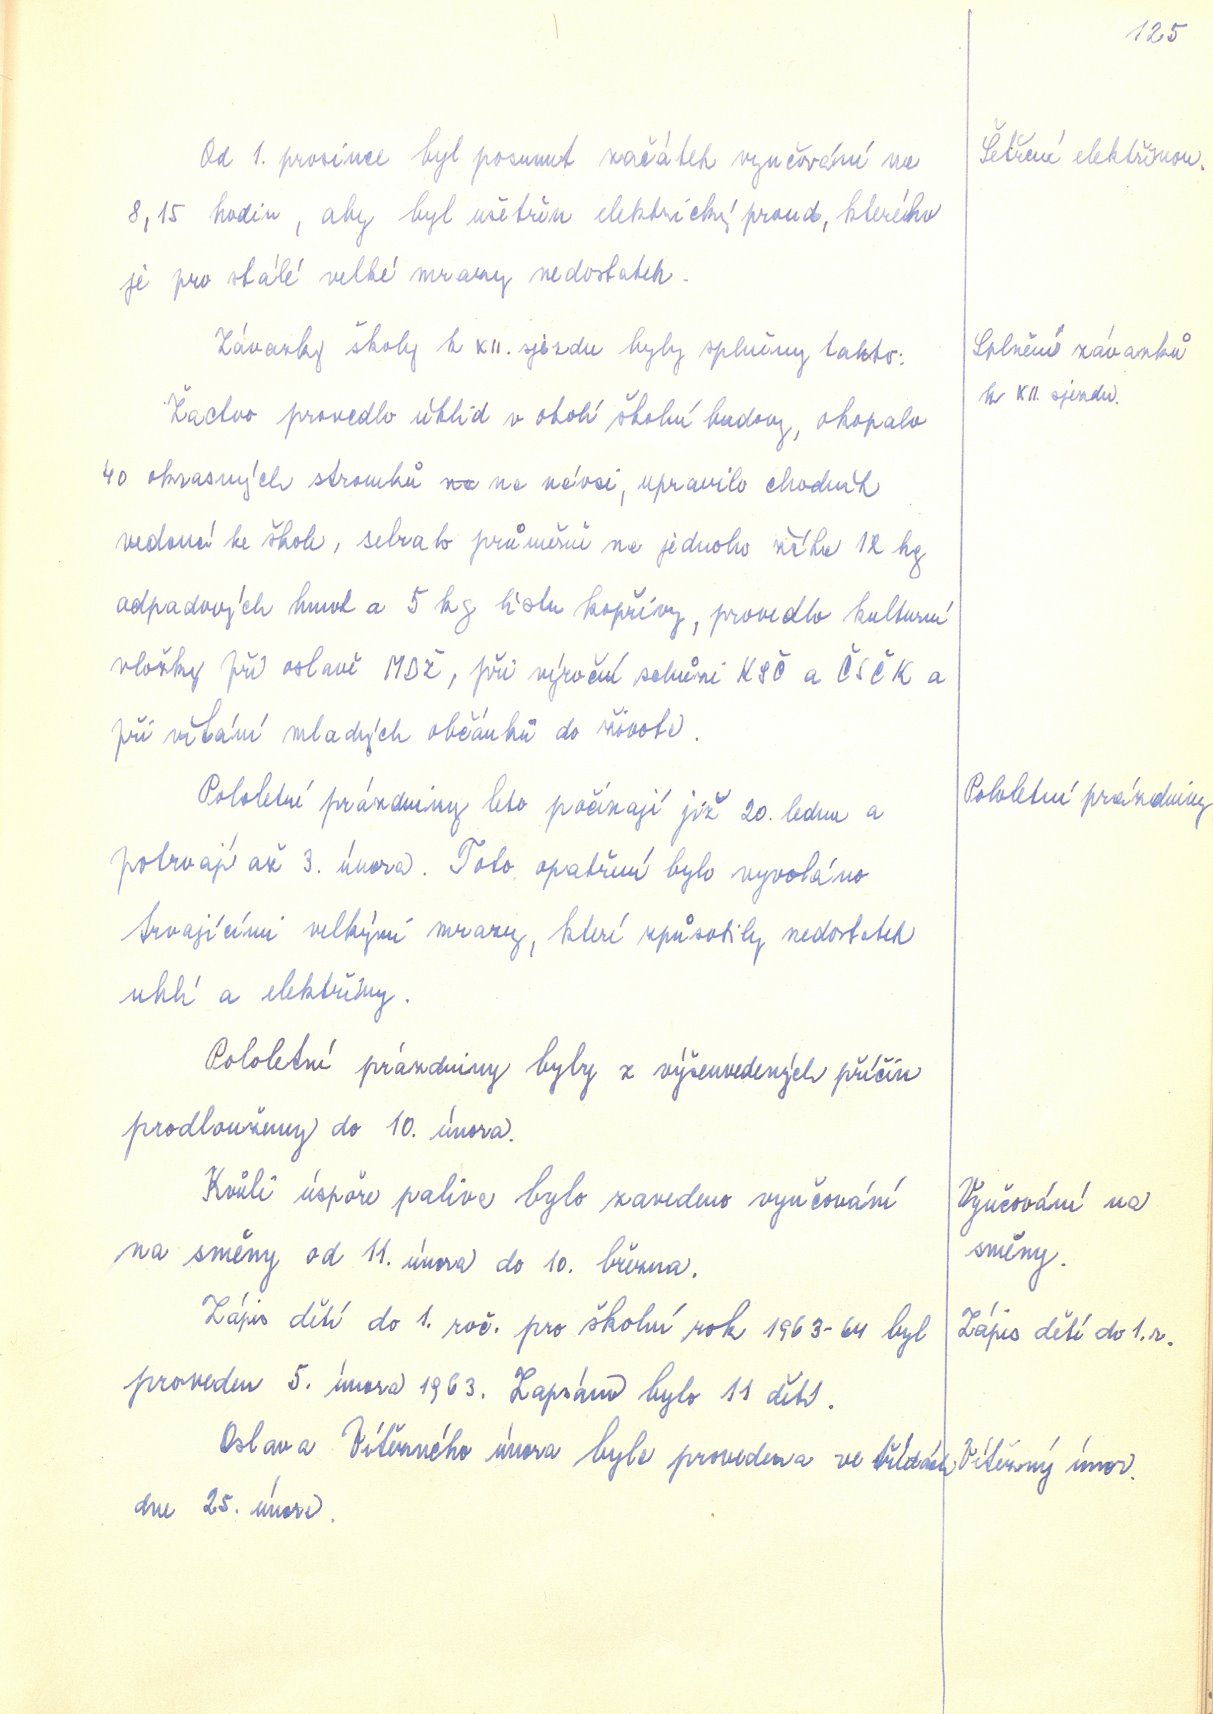 125
Od 1. prosince byl posunut začátek vyučování na
8,15 hodin, aby byl ušetřen elektrický proud, kterého
je pro stálé velké mrazy nedostatek.
Šetření elektřinou.
Závazky školy k XII. sjezdu byly splněny takto:
Splnění závazků
k XII. sjezdu.
Žactvo provedlo úklid v okolí školní budovy, okopalo
40 okrasných stromků na na návsi, upravilo chodník
vedoucí ke škole, sebralo průměrně na jednoho žáka 12 kg
odpadových hmot a 5 kg listu kopřivy, provedlo kulturní
vložky při oslavě MDŽ, při výroční schůzi KSČ a ČSČK a
při vítání mladých občánků do života.
Pololetní prázdniny leto počínají již 20. lednu a
potrvají až 3. února. Toto opatření bylo vyvoláno
trvajícími velkými mrazy, které způsobily nedostatek
uhlí a elektřiny.
Pololetní prázdniny
Pololetní prázdniny byly z výšeuvedených příčin
prodlouženy do 10. února.
Kvůli úspoře paliva bylo zavedeno vyučování
na směny od 11. února do 10. března.
Vyučování na
směny.
Zápis dětí do 1. roč. pro školní rok 1963-64 byl
proveden 5. února 1963. Zapsáno bylo 11 dětí.
Zápis dětí do 1. r.
Oslava Vítězného února byla provedena ve třídách
dne 25. února.
Vítězný únor.